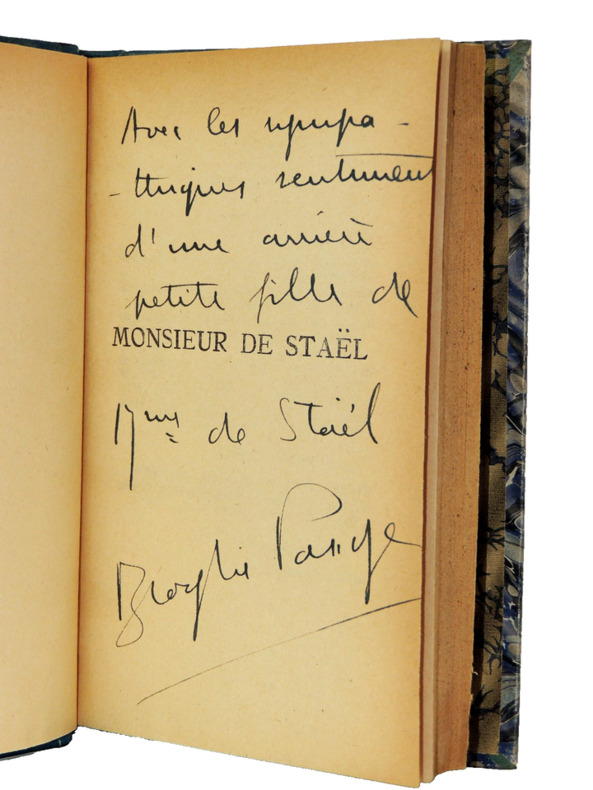 Avec les sympa-
-thiques sentiment
d'une arrière
petite fille de
MONSIEUR DE STAËL
Mme de Staël
Broglie Pange